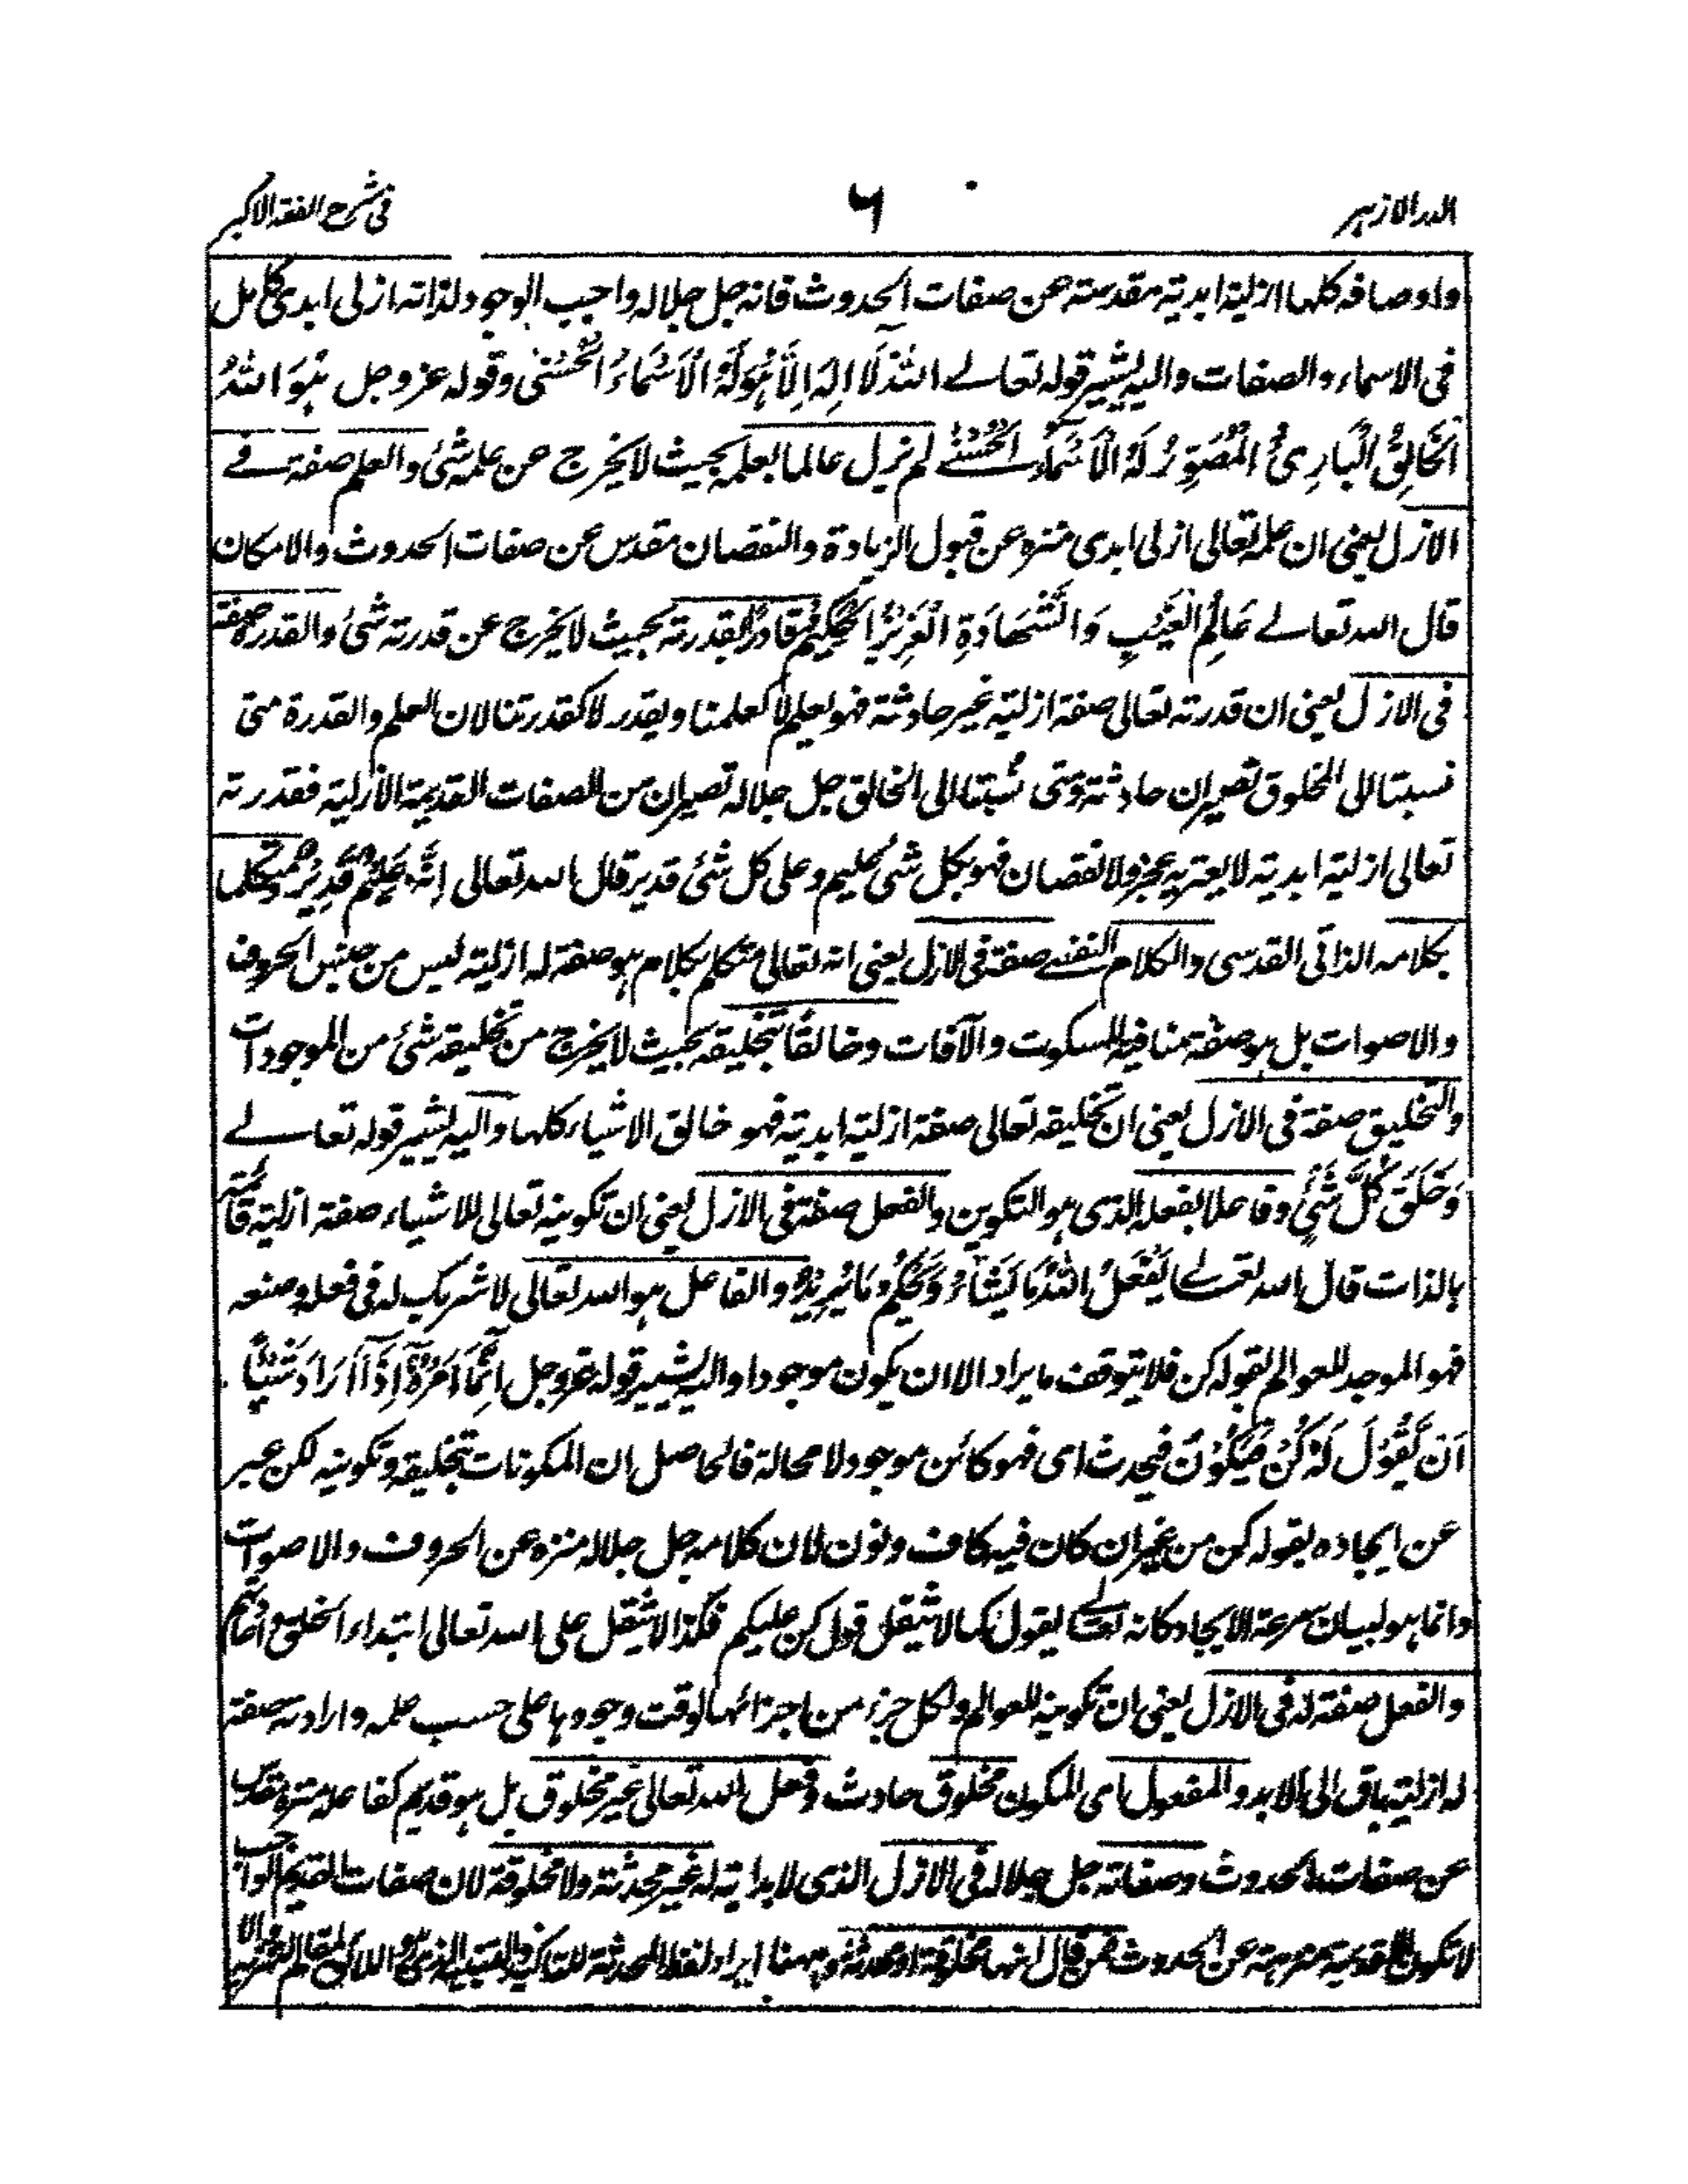 الدر الازہر
٦
فی شرح الفقہ الاکبر
واوصافہ کلہا ازلیۃ ابدیۃ مقدستہ عن صفات الحدوث فانہ جل جلالہ واجب الوجود لذاتہ ازلی ابدی کامل
فی الاسماء والصفات والیہ یشیر قولہ تعالے اَللّٰہُ لَا اِلٰہَ اِلَّا ہُوَ لَہُ الْاَسْمَاءُ الْحُسْنٰی وقولہ عز وجل ہُوَ اللّٰہُ
الْخَالِقُ الْبَارِیُٔ الْمُصَوِّرُ لَہُ الْاَسْمَاءُ الْحُسْنٰے لم یزل عالما بعلمہ بحیث لا یخرج عن علمہ شیٔ والعلم صفۃ فے
الازل یعنی ان علمہ تعالی ازلی ابدی منزہ عن قبول الزیادۃ والنقصان مقدس عن صفات الحدوث والامکان
قال اللہ تعالے عَالِمُ الْغَیْبِ وَالشَّھَادَۃِ الْعَزِیْزُ الْحَکِیْمُ وقادرا بقدرتہ بحیث لا یخرج عن قدرتہ شیٔ والقدرۃ صفۃ
فی الازل یعنی ان قدرتہ تعالی صفۃ ازلیۃ غیر حادثۃ فہو یعلم لا کعلمنا ویقدر لا کقدرتنا لان العلم والقدرۃ متی
نسبتا الی المخلوق تصیران حادثۃ ومتی نسبتا الی الخالق جل جلالہ تصیران من الصفات القدیمۃ الازلیۃ فقدرتہ
تعالی ازلیۃ ابدیۃ لا یعتریہ عجز ولا نقصان فہو بکل شیٔ علیم وعلی کل شیٔ قدیر قال اللہ تعالی اِنَّہٗ عَلِیْمٌ قَدِیْرٌ ومتکلما
بکلامہ الذاتی القدسی والکلام النفسے صفۃ فی الازل یعنی انہ تعالی متکلم بکلام ہو صفۃ لہ ازلیۃ لیس من جنس الحروف
والاصوات بل ہو صفۃ منافیۃ للسکوت والآفات وخالقًا بتخلیقہ بحیث لا یخرج من تخلیقہ شیٔ من الموجودات
والتخلیق صفۃ فی الازل یعنی ان تخلیقہ تعالی صفۃ ازلیۃ ابدیۃ فہو خالق الاشیاء کلہا والیہ یشیر قولہ تعالے
وَخَلَقَ کُلَّ شَیْءٍ وفاعلا بفعلہ الذی ہو التکوین والفعل صفۃ فی الازل یعنی ان تکوینہ تعالی للاشیاء صفۃ ازلیۃ قائمۃ
بالذات قال اللہ تعالے یَفْعَلُ اللّٰہُ مَا یَشَآءُ وَیَحْکُمُ مَا یُرِیْدُ والفاعل ہو اللہ تعالی لا شریک لہ فی فعلہ وصنعہ
فہو الموجد للعوالم بقولہ کن فلا یتوقف ما یراد الا ان یکون موجودا والیہ یشیر قولہ عزوجل اِنَّمَا اَمْرُہٗ اِذَا اَرَادَ شَیْئًا
اَنْ یَّقُوْلَ لَہٗ کُنْ فَیَکُوْنُ فیحدث ای فہو کائن موجود لا محالۃ فالحاصل ان المکونات بتخلیقہ وتکوینہ لکن عبر
عن ایجادہ بقولہ کن من غیر ان کان فیہ کاف ونون لان کلامہ جل جلالہ منزہ عن الحروف والاصوات
وانما ہو لبیان سرعۃ الایجاد کانہ تعالے یقول کما لا یثقل قول کن علیکم فکذا لا یثقل علی اللہ تعالی ابتداء الخلق واعادتہم
والفعل صفۃ لہ فی الازل یعنی ان تکوینہ للعوالم ولکل جزء من اجزائہا لوقت وجودہا علی حسب علمہ وارادتہ صفۃ
لہ ازلیۃ باق الی الابد والمفعول ای المکون مخلوق حادث وفعل اللہ تعالی غیر مخلوق بل ہو قدیم کفاعلہ منزہ مقدس
عن صفات الحدوث وصفاتہ جل جلالہ فی الازل الذی لا بدایۃ لہ غیر محدثۃ ولا مخلوقۃ لان صفات القدیم الواجب
لا تکون الا قدیمۃ منزہۃ عن الحدوث فمن قال انہا مخلوقۃ او محدثۃ وہہنا ایراد لفظ المحدثۃ للتاکید